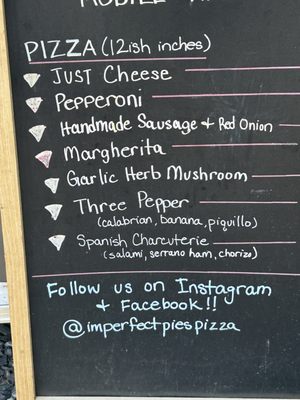 PIZZA (12ish inches)
JUST Cheese
Pepperoni
Handmade Sausage + Red Onion
Margherita
Garlic Herb Mushroom
Three Pepper
(calabrian, banana, piquillo)
Spanish Charcuterie
(salami, serrano ham, chorizo)
Follow us on Instagram
+ Facebook!!
@imperfectpiespizza